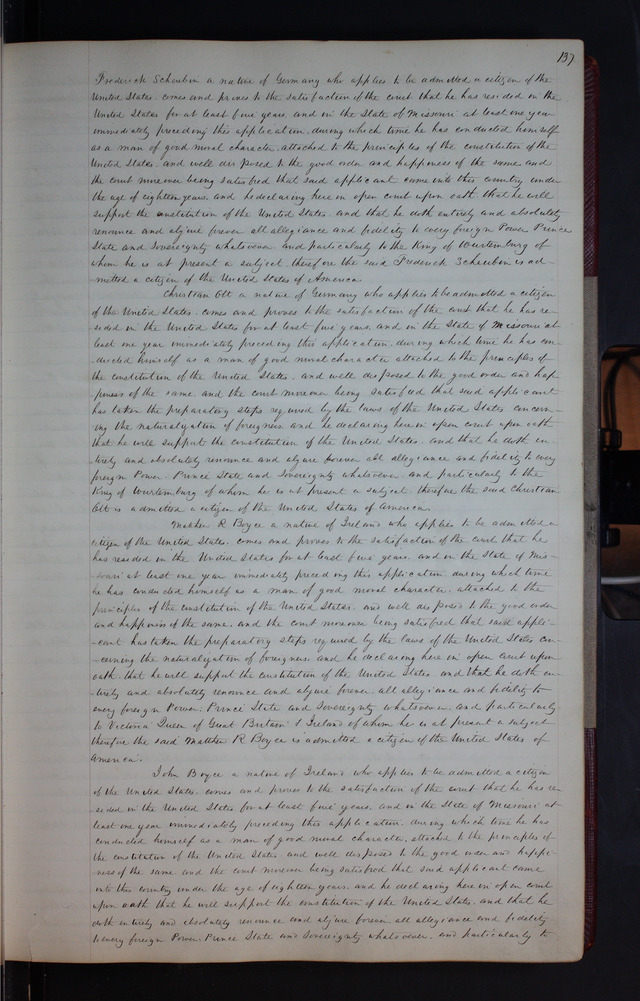 137
Frederick Scheubin a native of Germany who applies to be admitted a citizen of the
United States. comes and proves to the satisfaction of the court that he has resided in the
United States for at least five years, and in the State of Missouri at least one year
immediately preceding this application, during which time he has conducted himself
as a man of good moral character, attached to the principles of the constitution of the
United States, and well disposed to the good order and happiness of the same and
the court moreover being satisfied that said applicant came into this country under
the age of eighteen years, and he declaring here in open court upon oath that he will
support the constitution of the United States, and that he doth entirely and absolutely
renounce and abjure forever all allegiance and fidelity to every foreign Power Prince
State and Sovereignty whatsoever and particularly to the King of Wurtemburg of
whom he is at present a subject. therefore the said Frederick Scheubin is ad-
mitted a citizen of the United States of America.
Christian Ott a native of Germany who applies to be admitted a citizen
of the United States. comes and proves to the satisfaction of the court that he has re-
sided in the United States for at least five years, and in the State of Missouri at
least one year immediately preceding this application, during which time he has con-
ducted himself as a man of good moral character attached to the principles of
the constitution of the United States, and well disposed to the good order and hap
piness of the same, and the court moreover being satisfied that said applicant
has taken the preparatory steps required by the laws of the United States concern-
ing the naturalization of foreigners and he declaring here in open court upon oath
that he will support the constitution of the United States, and that he doth en-
tirely and absolutely renounce and abjure forever all allegiance and fidelity to every
foreign Power, Prince State and Sovereignty whatsoever, and particularly to the
King of Wurtemburg of whom he is at present a subject therefore the said Christian
Ott is admitted a citizen of the United States of America.
Matthew R Boyce a native of Ireland who applies to be admitted a
citizen of the United States. comes and proves to the satisfaction of the court that he
has resided in the United States for at least five years, and in the State of Mis-
-souri at least one year immediately preceding this application during which time
he has conducted himself as a man of good moral character, attached to the
principles of the constitution of the United States, and well disposed to the good order
and happiness of the same, and the court moreover being satisfied that said appli-
-cant has taken the preparatory steps required by the laws of the United States con-
-cerning the naturalization of foreigners and he declaring here in open court upon
oath, that he will support the constitution of the United States, and that he doth en
-tirely and absolutely renounce and abjure forever, all allegiance and fidelity to
every foreign Power, Prince State and Sovereignty whatsoever, and particularly
to Victoria Queen of Great Britain & Ireland of whom he is at present a subject
therefore the said Matthew R Boyce is admitted a citizen of the United States of
America.
John Boyce a native of Ireland who applies to be admitted a citizen
of the United States. comes and proves to the satisfaction of the court that he has re-
-sided in the United States for at least five years, and in the State of Missouri at
least one year immediately preceding this application, during which time he has
conducted himself as a man of good moral character, attached to the principles of
the constitution of the United States, and well disposed to the good order and happi-
ness of the same and the court moreover being satisfied that said applicant came
into this country under the age of eighteen years, and he declaring here in open court
upon oath that he will support the constitution of the United States, and that he
doth entirely and absolutely renounce and abjure forever all allegiance and fidelity
to every foreign Power, Prince State and Sovereignty whatsoever, and particularly to